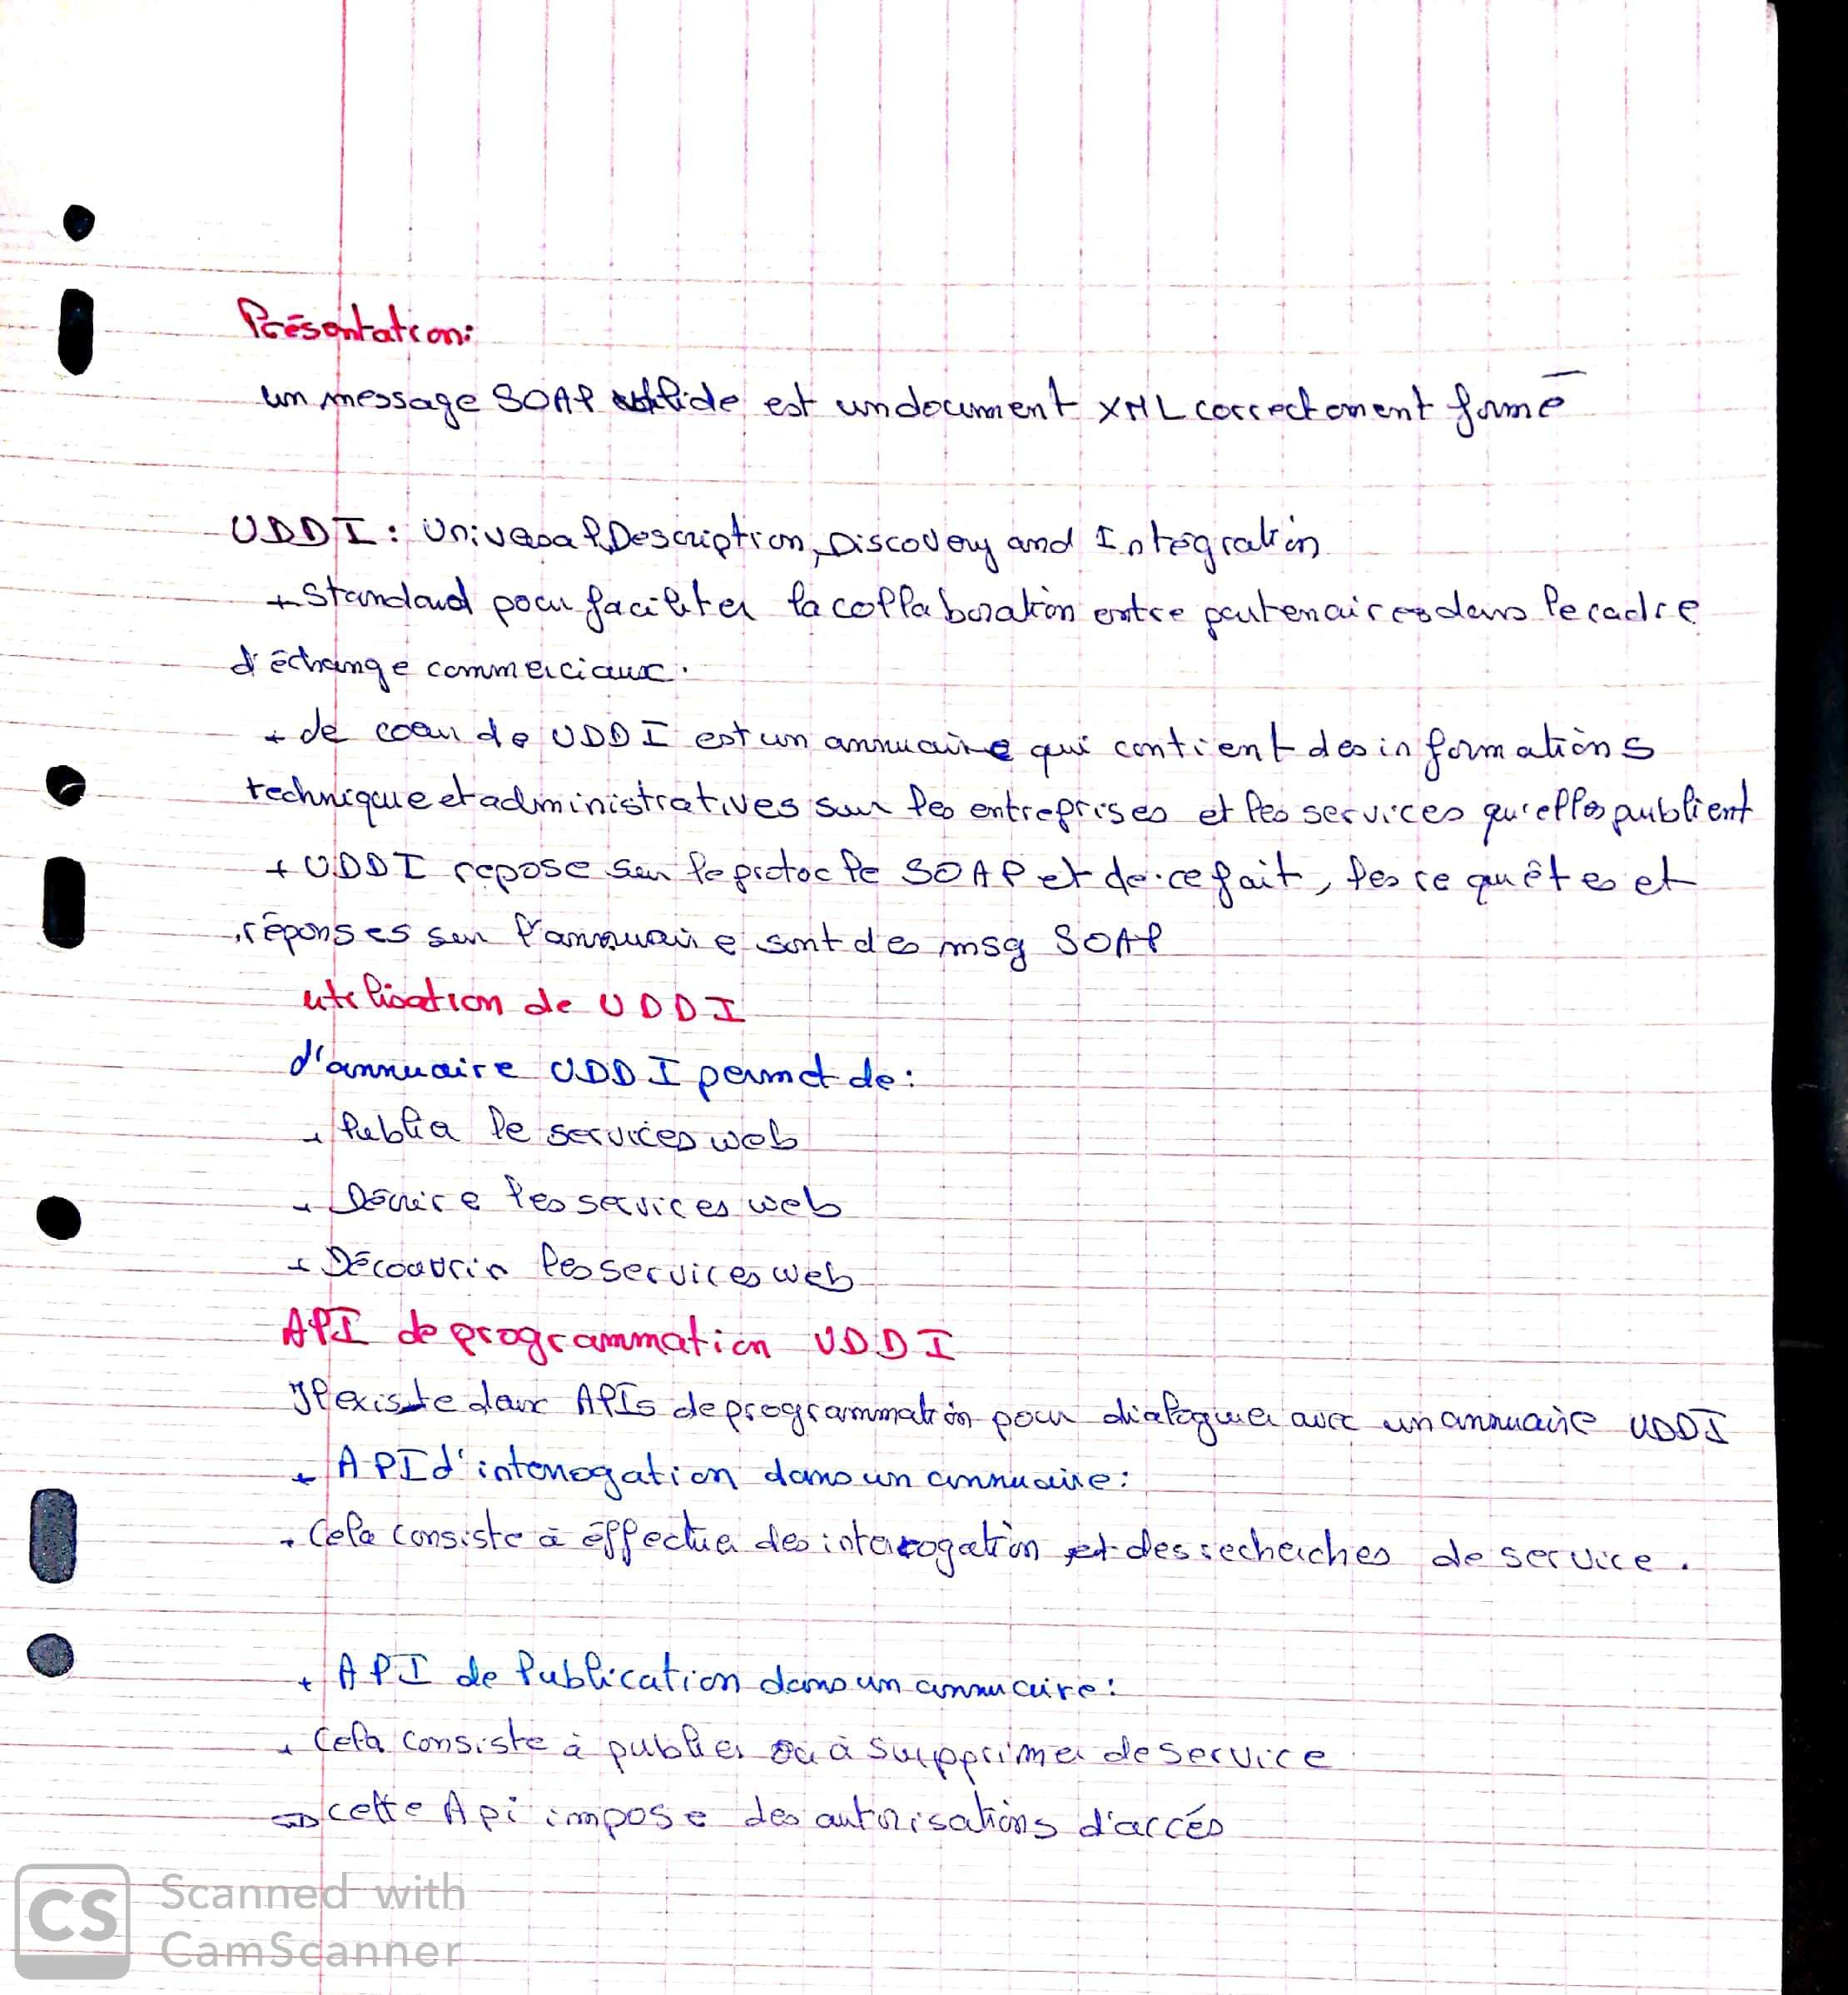 Présentation:
un message SOAP valide est un document XML correctement formé
UDDI : Universal Description, Discovery and Intégration
+ Standard pour faciliter la collaboration entre partenaires dans le cadre
d'échange commerciaux.
+ Le coeur de UDDI est un annuaire qui contient des informations
technique et administratives sur les entreprises et les services qu'elles publient
+ UDDI repose sur le protocle SOAP et de ce fait, les requêtes et
réponses sur l'annuaire sont des msg SOAP
utilisation de UDDI
L'annuaire UDDI permet de :
+ Publier le services web
+ Décrire les services web
+ Découvrir les services web
API de programmation UDDI
Il existe deux APIs de programmation pour dialoguer avec un annuaire UDDI
+ API d'interrogation dans un annuaire :
+ Cela consiste à éffectuer des interrogation et des recherches de service .
+ API de Publication dans un annuaire :
+ Cela consiste à publier ou à supprimer de service
⇒ cette Api impose des autorisations d'accés
CS
Scanned with
CamScanner